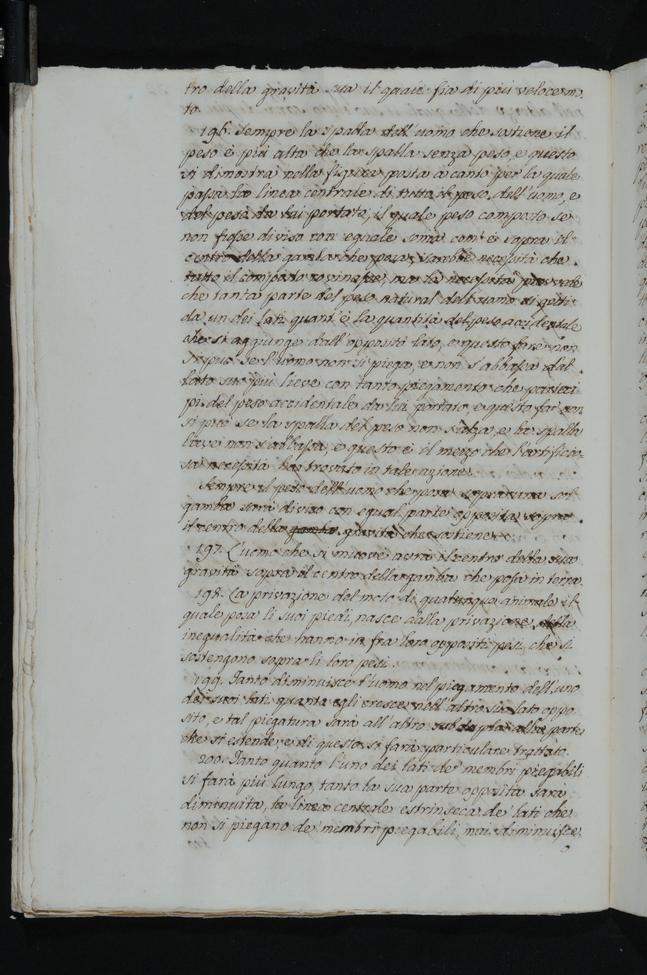 tro della gravità sua il quale fia di più veloce mo
to.
196. Sempre la spalla dell'uomo che sostiene il
peso è più alta che la spalla senza peso, e questo
si dimostra nella figura posta a canto per la quale
passa la linea centrale di tutto il peso dell'uomo, e
del peso da lui portato, il quale peso composto se
non fusse diviso con eguale soma com'è sopra il
centro della gamba che posa, sarebbe necessità che
tutto il composto rovinasse, ma la necessità provede
che tanta parte del peso natural dell'uomo si getti
da un dei lati quant'è la quantità del peso accidentale
che si aggiunge dall'opposito lato, e questo fare non
si può se l'uomo non si piega, e non s'abbassa dal
lato suo più lieve con tanto piegamento che parteci
pi del peso accidentale da lui portato, e questo far non
si può se la spalla del peso non s'alza, e la spalla
lieve non s'abbassa, e questo è il mezo che l'artificio
sa necessità ha trovato in tale azione.
Sempre il peso dell'uomo che posa sopra una sol
gamba sarà diviso con equal parte opposita sopra
il centro della gamba gravità che sostiene.
197. L'uomo che si muove avrà il centro della sua
gravità sopra il centro della gamba che posa in terra.
198. La privazione del moto di qualunque animale il
quale posa li suoi piedi, nasce dalla privazione della
inequalità che hanno in fra loro oppositi pesi, che si
sostengono sopra li loro pesi.
199. Tanto diminuisce l'uomo nel piegamento dell'uno
de suoi lati quanto egli cresce nell'altro suo lato oppo
sito, e tal piegatura sarà all'altro subdupla alla parte
che si estende, e di questo si farà particulare trattato.
200. Tanto quanto l'uno dei lati de membri piegabili
si farà più lungo, tanto la sua parte opposita sarà
diminuita, la linea centrale estrinseca de' lati che
non si piegano de' membri piegabili, mai diminuisce,
o